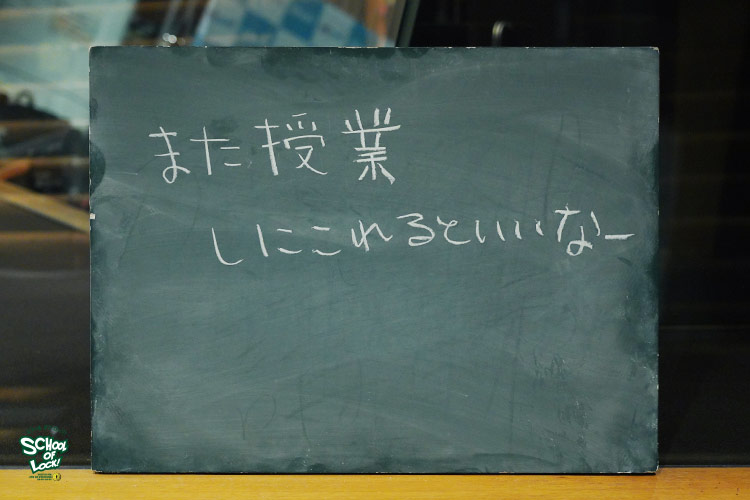 また授業
しにこれるといいなー
SCHOOL
OF
LOCK!